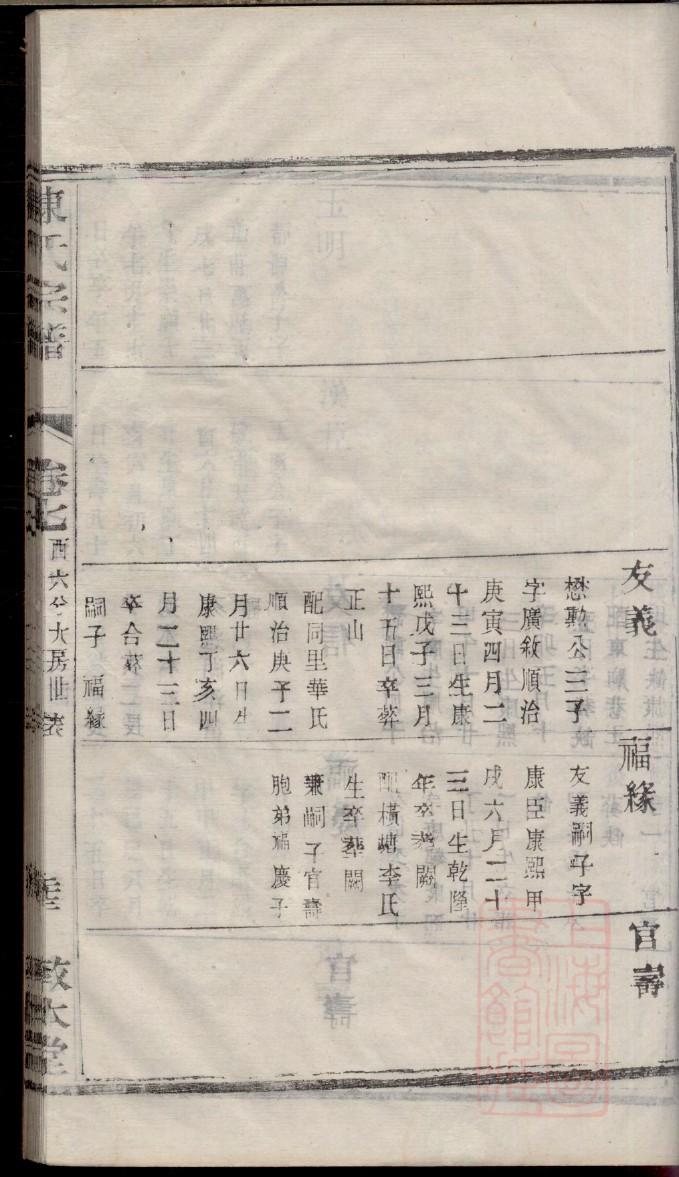 友義
懋勳公三子
字廣敘順治
庚寅四月二
十三日生康
熙戊子三月
十五日卒葬
正山
配同里華氏
順治庚子二
月廿六日生
康熙丁亥四
月二十三日
卒合葬
嗣子福緣
福緣
友義嗣子字
康臣康熙甲
戌六月二十
三日生乾隆
年卒葬闕
配橫塘李氏
生卒葬闕
兼嗣子官壽
胞弟福慶子
官壽
陳氏宗譜
卷七
西六分大房世表
敦本堂
上海圖書館藏